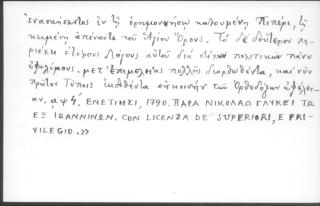 ἐνασκήσαντος ἐν τῇ ἐρημονήσῳ καλουμένῃ Πιπέρι, τῇ
κειμένῃ ἀπέναντι τοῦ Ἁγίου Ὄρους. Τὸ δὲ δεύτερον πε-
ριέχει ἑτέρους Λόγους αὐτοῦ διὰ στίχων πολιτικῶν πάνυ
ὠφελίμους. μετ' ἐπιμελείας πολλῆς διορθωθέντα, καὶ νῦν
πρῶτον Τύποις ἐκδοθέντα εἰς κοινὴν τῶν Ὀρθοδόξων ὠφέλει-
αν. αψϟ΄. ΕΝΕΤΙΗΣΙ, 1790. ΠΑΡΑ ΝΙΚΟΛΑΩ ΓΛΥΚΕΙ ΤΩ
ΕΞ ΙΩΑΝΝΙΝΩΝ. CON LICENZA DE' SUPERIORI, E PRI-
VILEGIO.>>